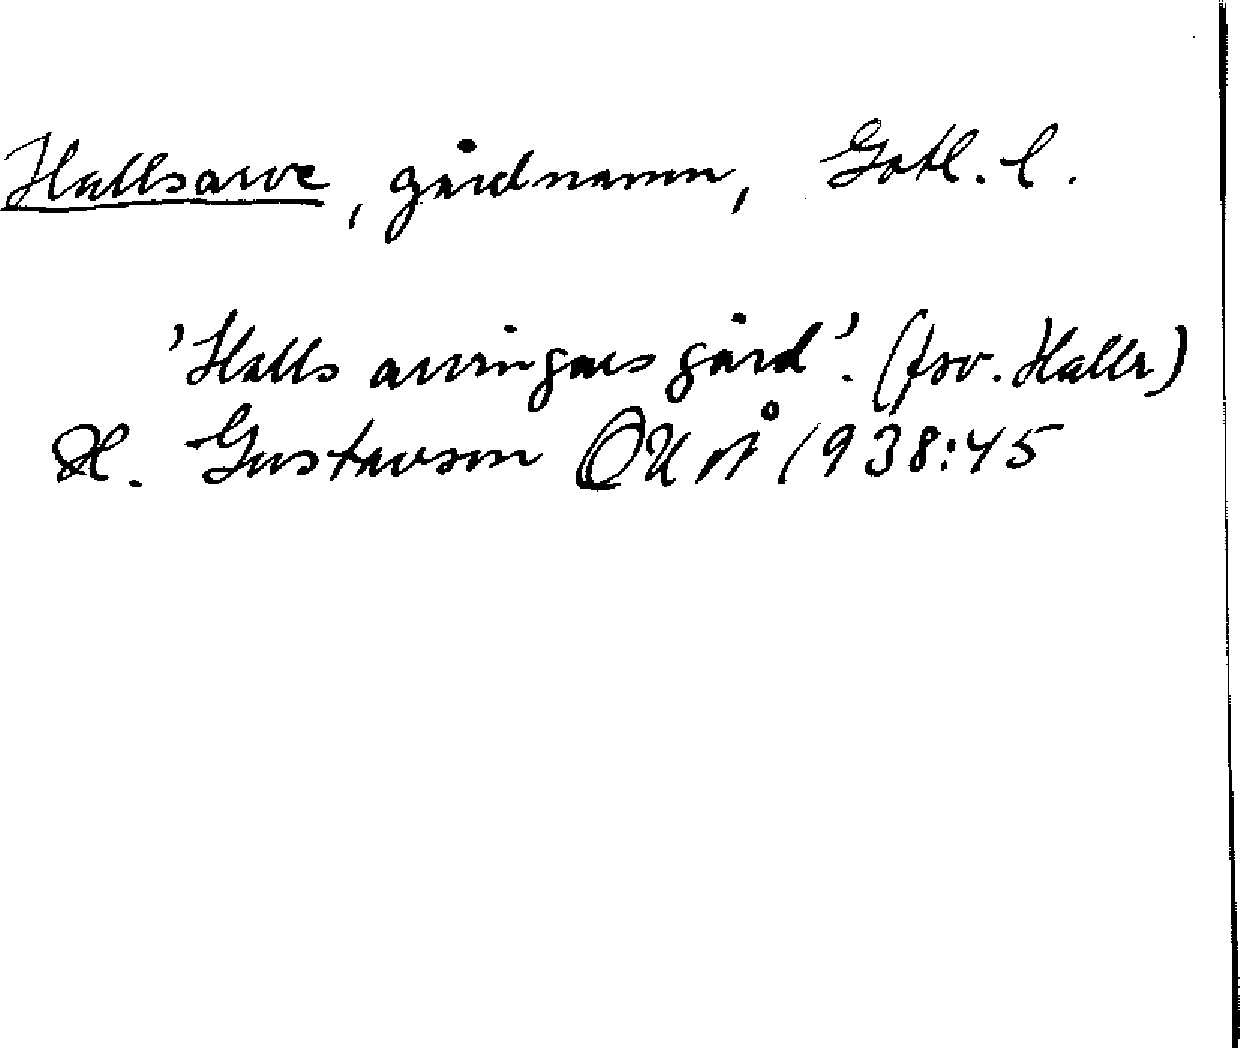 Hallsarve, gårdnamn, Gotl. l.
'Halls arvingars gård'. (fsv. Hallr)
H. Gustavson OUÅ 1938:45